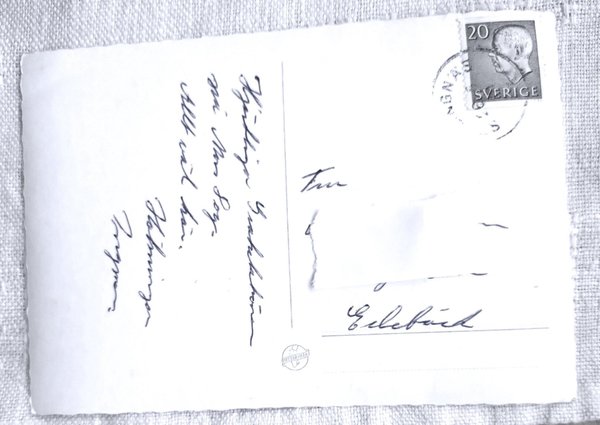 Hjärtliga Gratulationer
på Mors Dag.
Allt väl här.
Hälsningar
Ingvar.
20
SVERIGE
Fru